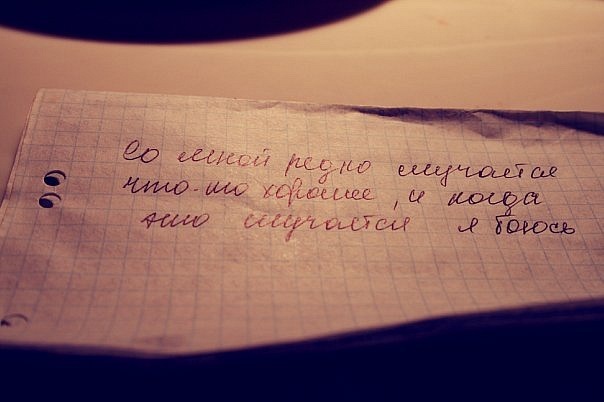 Со мной редко случается
что-то хорошее, и когда
это случается я боюсь